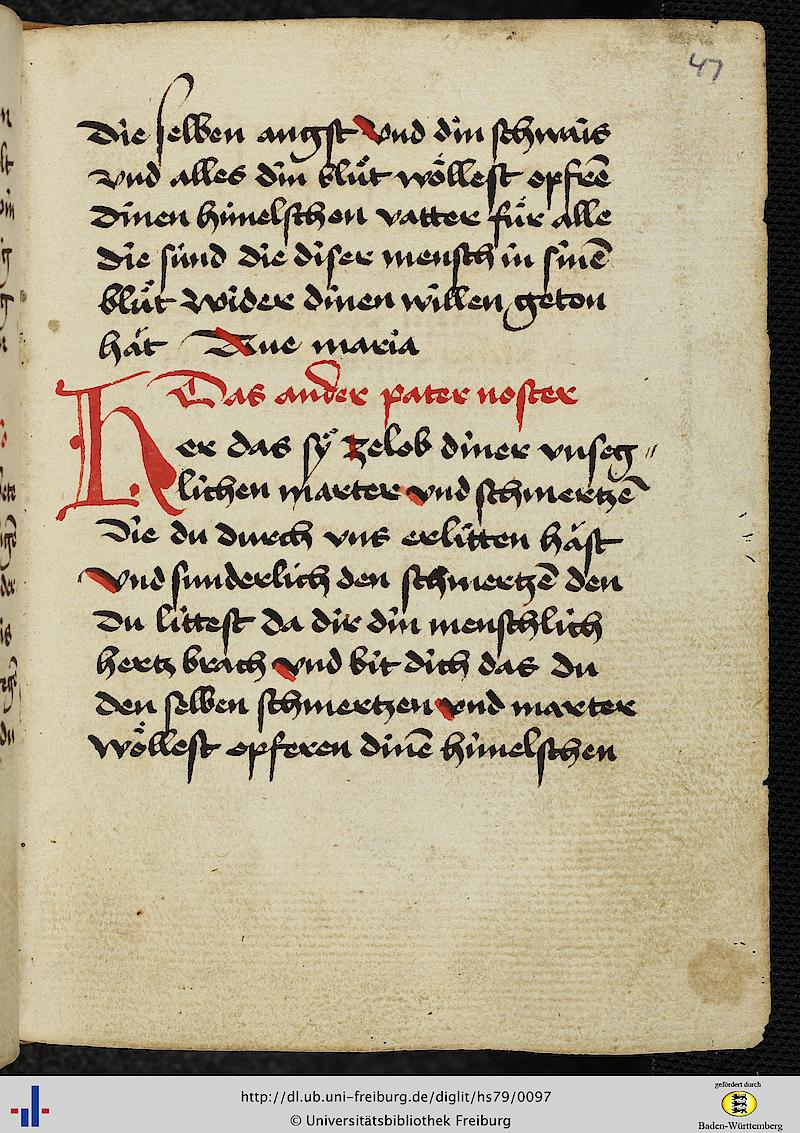 47
die selben angst vnd din schwais
vnd alles din blůt wo̎llest opfrē
dinen himelschen vatter fu̎r alle
die sünd die diser mensch in sinē
blůt wider dinen willen geton
hăt Aue maria
Das ander pater noster
Her das sÿ ze lob diner vnseg〃
lichen marter vnd schmertzē
Die du durch vns erlitten hăst
Vnd sunderlich den schmertzē den
du littest da dir din menschlich
hertz brach vnd bit dich das du
den selben schmertzen vnd marter
wo̎llest opferen dinē himelschen
http://dl.ub.uni-freiburg.de/diglit/hs79/0097
© Universitätsbibliothek Freiburg
gefördert durch
Baden-Württemberg